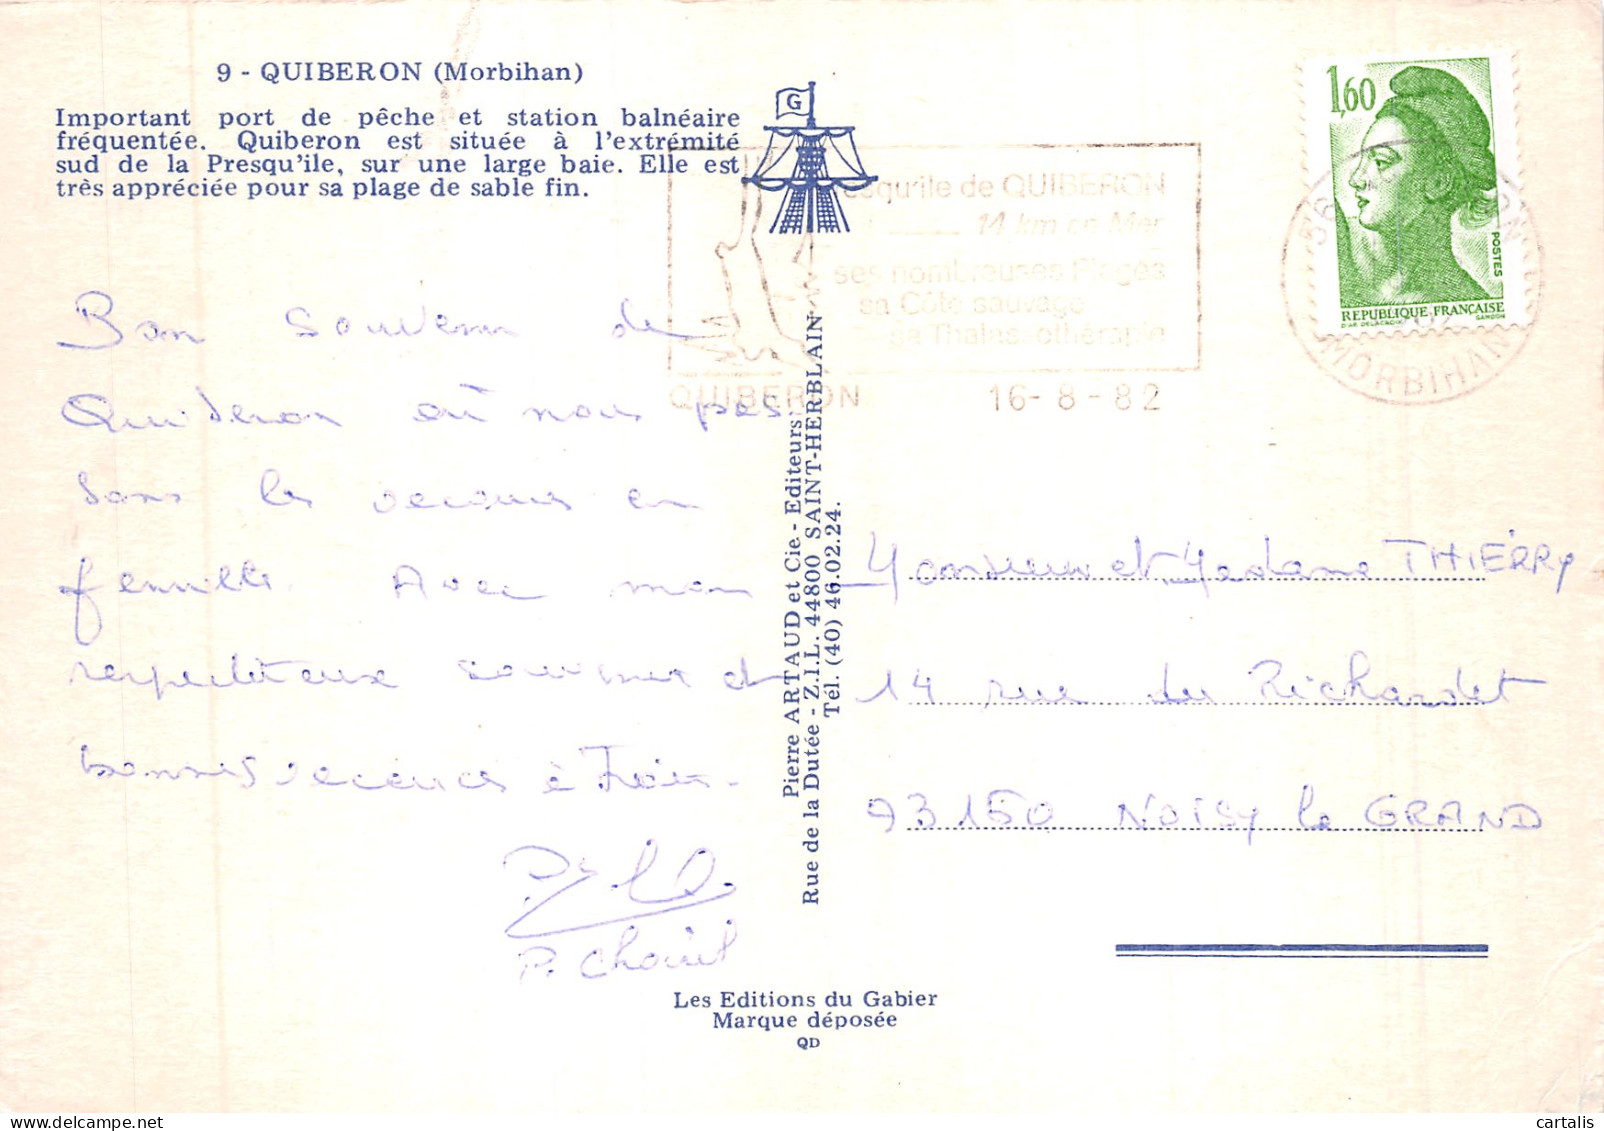 9 - QUIBERON (Morbihan)
Important port de pêche et station balnéaire
fréquentée. Quiberon est située à l'extrémité
sud de la Presqu'ile, sur une large baie. Elle est
très appréciée pour sa plage de sable fin.
G
1,60
POSTES
REPUBLIQUE FRANÇAISE
D'AP. DELACROIX GANDON
de QUIBERON
14 km en Mer
ses nombreuses Plages
sa Côte sauvage
sa Thalassothérapie
QUIBERON 16-8-82
56
MORBIHAN
Bon souvenir de
Quiberon où nous pas-
sons les vacances en
famille. Avec mon
respectueux souvenir et
bonnes vacances à
P. Choiril
Pierre ARTAUD et Cie. - Editeurs
Rue de la Dutée - Z.I.L. 44800 SAINT-HERBLAIN
Tél. (40) 46.02.24.
Monsieur et Madame THIERRY
14 rue du Richardet
93150 NOISY le GRAND
Les Editions du Gabier
Marque déposée
QD
cartalis